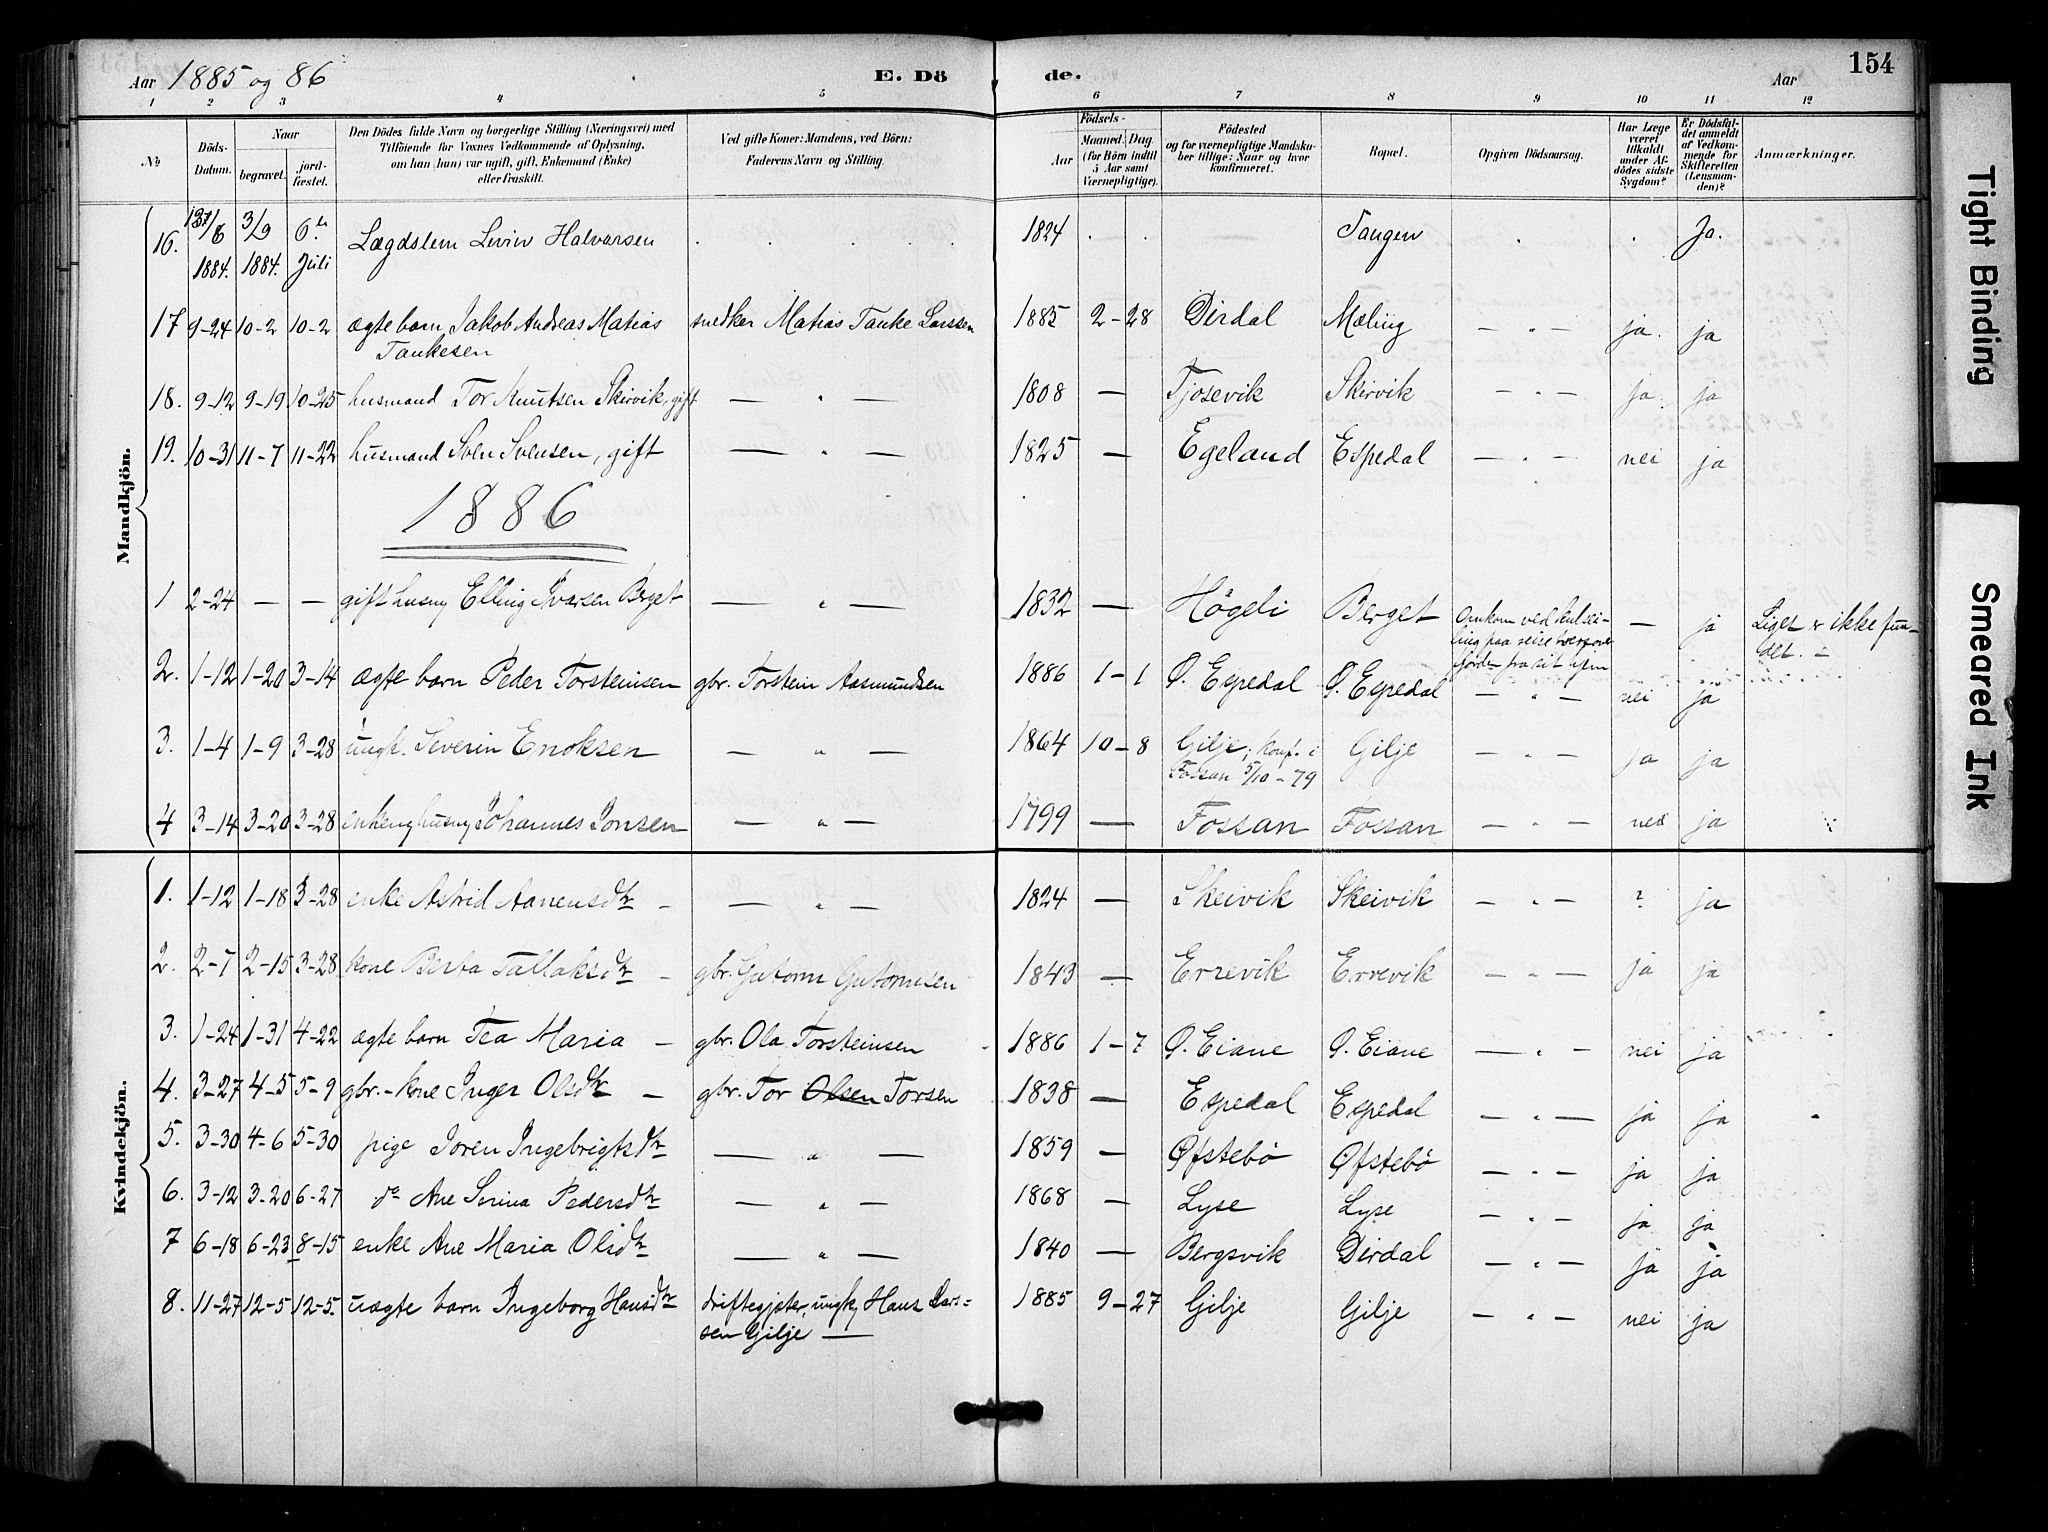 154
Aar 1885 og 86 E. Dö de. Aar
1 2 3 4 5 6 7 8 9 10 11 12
No
Döds-Datum.
Naar
begravet.
jord-fæstet.
Den Dödes fulde Navn og borgerlige Stilling (Næringsvei) med
Tilföiende for Voxnes Vedkommende af Oplysning,
om han (hun) var ugift, gift, Enkemand (Enke)
eller fraskilt.
Ved gifte Koner: Mandens, ved Börn:
Faderens Navn og Stilling.
Födsels-
Aar
Maaned. Dag.
(for Börn indtil
5 Aar samt
Værnepligtige).
Födested
og for værnepligtige Mandska-
ber tillige: Naar og hvor
konfirmeret.
Bopæl.
Opgiven Dödsaarsag.
Har Læge
været
tilkaldt
under Af-
dödes sidste
Sygdom?
Er Dödsfal-
det anmeldt
af Vedkom-
mende for
Skifteretten
(Lensman-
den)?
Anmærkninger.
Mandkjön.
16. /8 1884. 3/9 1884. 6te Juli Lægdslem Halvarsen 1824 Tangen Ja.
17 9-24 10-2 10-2 ægte barn Jakob Andreas Matias snedker Matias Tanke Larssen 1885 2-28 Dirdal Mæling — " — ja. ja
Tankesen
18. 9-12 9-19 10-25 husmand Tor Knutsen Skeivik, gift — " — 1808 — Tjosevik Skeivik — " — ja. ja
19. 10-31 11-7 11-22 husmand Sven Svensen, gift — " — 1825 — Egeland Espedal — " — nei ja
1886
1 2-24 — — gift husmd Elling Ivarsen Berget — " — 1832 — Högeli Berget Omkom ved kulsei-
ling paa reise
fjorden fra sit hjem — ja Liget er ikke fun-
det. —
2. 1-12 1-20 3-14 ægte barn Peder Torsteinsen gbr. Torstein Aasmundsen 1886 1-1 Ø. Espedal Ø. Espedal — " — nei ja
3. 1-4 1-9 3-28 ungk. Severin Enoksen — " — 1864 10-8 Gilje; konf. i Gilje — " — ja ja
Fossan 5/10-79
4 3-14 3-20 3-28 Johannes Jonsen — " — 1799 — Fossan Fossan — " — nei ja
Kvindekjön.
1. 1-12 1-18 3-28 enke Astrid Aanensdtr — — " — 1824 — Skeivik Skeivik — " — ? ja
2. 2-7 2-15 3-28 kone Berta Tallaksdtr — gbr. Gutorm Gutormsen 1843 — Errevik Errevik — " — ja ja
3. 1-24 1-31 4-22 ægte barn Tea Maria — gbr. Ola Torsteinsen 1886 1-7 Ø. Eiane Ø. Eiane — " — nei ja
4. 3-27 4-5 5-9 gbr.-kone Inger Olsdtr — gbr. Tor Olsen Torsen 1838 — Espedal Espedal — " — ja ja
5. 3-30 4-6 5-30 pige Joren Ingebrigtsdtr — " — 1859 — Øfstebö Øfstebö — " — ja ja
6. 3-12 3-20 6-27 do Ane Serina Pedersdtr — " — 1868 — Lyse Lyse — " — ja ja
7 6-18 6-23 8-15 enke Ane Maria Olsdtr — " — 1840 — Bergsvik Dirdal — " — ja ja
8. 11-27 12-5 12-5. uægte barn Ingeborg Hansdtr driftegjæter, ungk, Hans Lars= 1885 9-27 Gilje Gilje — " — nei ja
sen Gilje —
Tight Binding
Smeared Ink